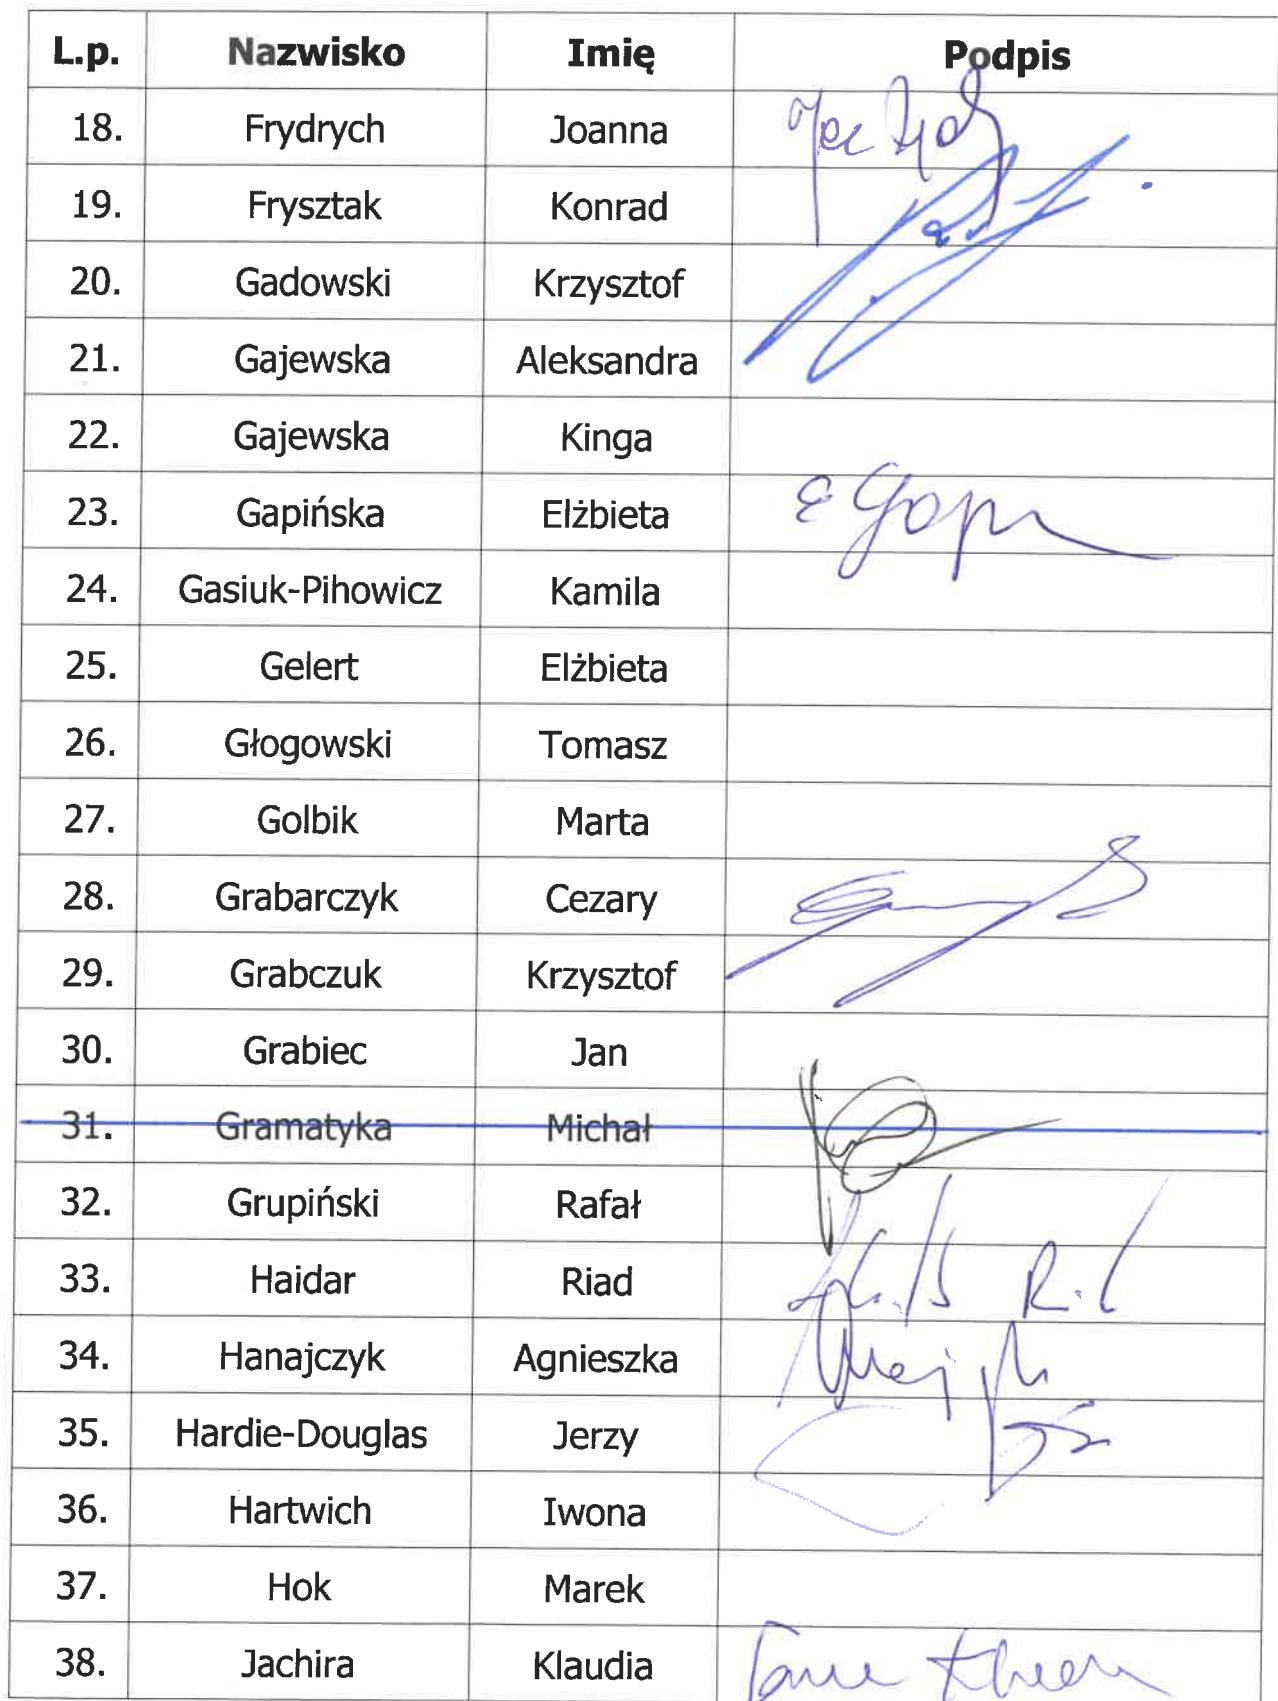 L.p. Nazwisko Imię Podpis
18. Frydrych Joanna
19. Frysztak Konrad
20. Gadowski Krzysztof
21. Gajewska Aleksandra
22. Gajewska Kinga
23. Gapińska Elżbieta
24. Gasiuk-Pihowicz Kamila
25. Gelert Elżbieta
26. Głogowski Tomasz
27. Golbik Marta
28. Grabarczyk Cezary
29. Grabczuk Krzysztof
30. Grabiec Jan
31. Gramatyka Michał
32. Grupiński Rafał
33. Haidar Riad
34. Hanajczyk Agnieszka
35. Hardie-Douglas Jerzy
36. Hartwich Iwona
37. Hok Marek
38. Jachira Klaudia